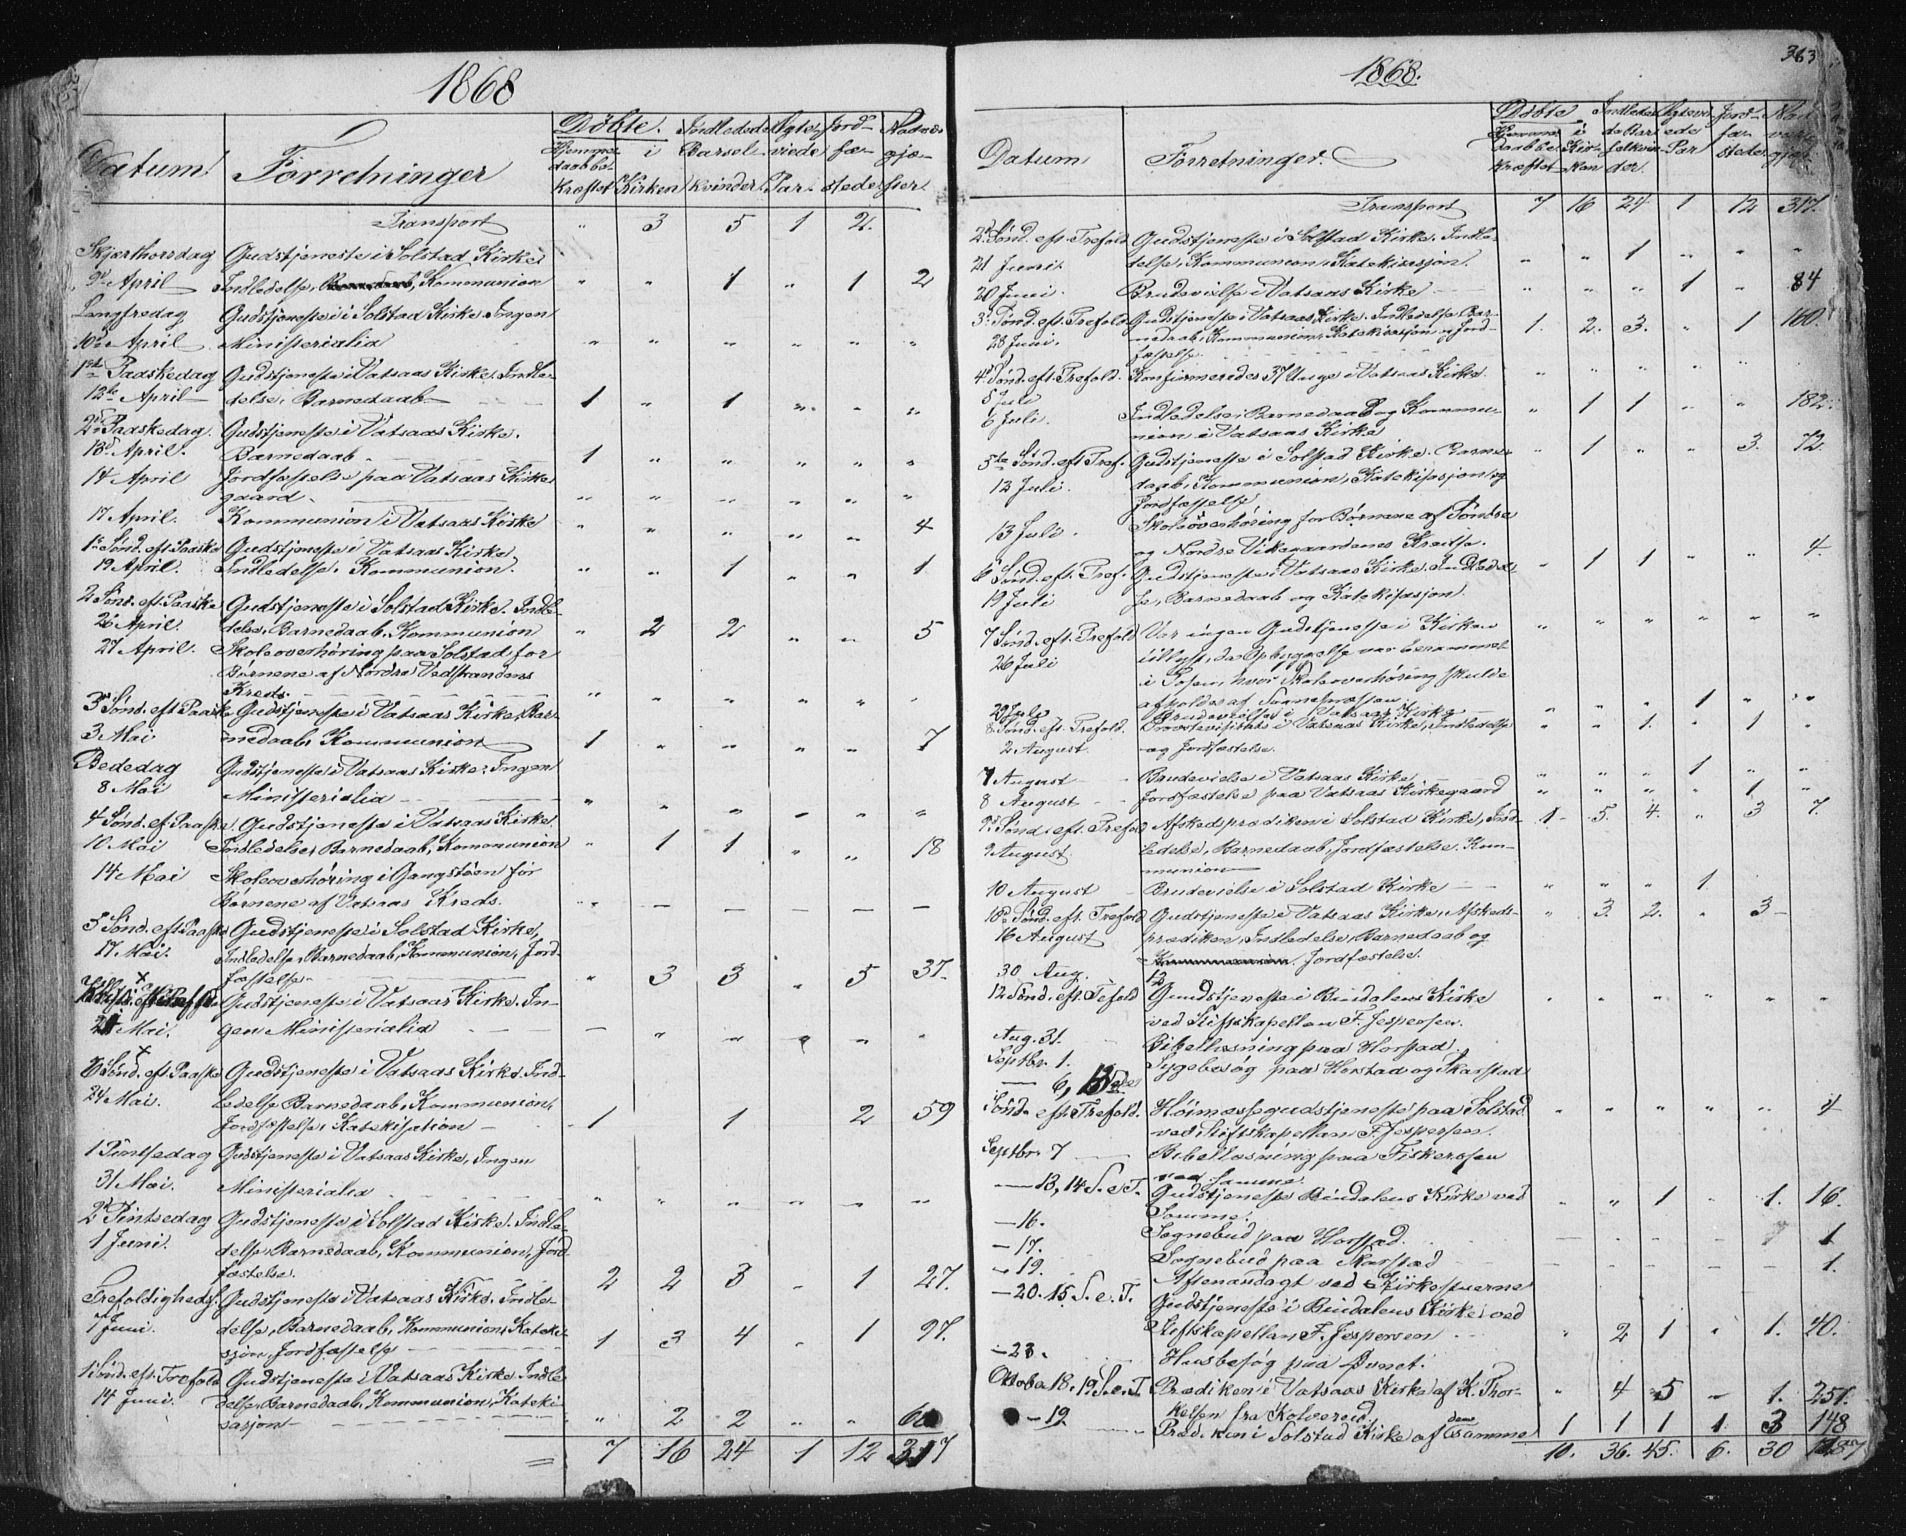 1868
Datum Forretninger Døbte. Hjemmedaab bekræftet i Kirken Indledede Barselkvinder Ægteviede Par Jordfæstede Nadvergjæster
Transport " 3 5 1 2.
Skjærthorsdag Gudstjeneste i Solstad Kirke
9de April Indledelse, Kommunion " " 1 " 1 2
Langfredag Gudstjeneste i Solstad Kirke. Ingen
10de April Ministerialia " " " " " "
1ste Paaskedag Gudstjeneste i Vatsaas Kirke. Indle-
12te April delse, Barnedaab 1 " 1 " " "
2d Paaskedag. Gudstjeneste i Vatsaas Kirke.
13d April. Barnedaab 1 " " " " "
14 April Jordfæstelse paa Vatsaas Kirke
gaard. " " " " "
17 April. Kommunion i Vatsaas Kirke " " " " " 4
1s Sønd. eft Paaske Gudstjeneste i Vatsaas Kirke
19 April. Indledelse. Kommunion. " " 1 " " 1
2 Sønd. eft. Paaske Gudstjeneste i Solstad Kirke. Indle-
26 April. delse, Barnedaab, Kommunion " 2 2 " " 5
27 April. Skoleoverhøring paa Solstad for
Børnene af Nordre Vedstrandens
Kreds. " " " " " "
3d Sønd. eft Paaske Gudstjeneste i Vatsaas Kirke, Bar-
3 Mai nedaab, Kommunion 1 " " " " 7
Bededag Gudstjeneste i Vatsaas Kirke. Ingen
8 Mai Ministerialia " " " " " "
4 Sønd. ef. Paaske Gudstjeneste i Vatsaas Kirke.
10 Mai Indledelse, Barnedaab, Kommunion " 1 1 " " 18
14 Mai Skoleoverhøring i Gangstøen for
Børnene af Vatsaas Kreds. " - - - - -
5 Sønd. eft Paaske Gudstjeneste i Solstad Kirke,
17 Mai. Indledelse, Barnedaab, Kommunion, Jord-
fæstelse " 3 3 " 5 37.
Gudstjeneste i Vatsaas Kirke. In-
21 Mai. gen Ministerialia - " " " " "
6 Sønd. eft. Paaske Gudstjeneste i Vatsaas Kirke. Ind-
24 Mai. ledelse Barnedaab, Kommunion,
Jordfæstelse, Katekisation 1 1 2 59
1 Pintsedag Gudstjeneste i Vatsaas Kirke, Ingen
31 Mai. Ministerialia " " " " " "
2d Pintsedag Gudstjeneste i Solstad Kirke. Indle-
1 Juni. delse, Barnedaab, Kommunion, Jord
fæstelse. 2 2 3 - 1 27.
Trefoldighedsf. Gudstjeneste i Vatsaas Kirke. Indle-
7 Juni. delse, Barnedaab, Kommunion, Kateki-
sjon, Jordfæstelse 1 3 4 - 1 97.
1 Sønd. eft. Trefold Gudstjeneste i Vatsaas Kirke Indle-
14 Juni. delse, Barnedaab, Kommunion, Kateki-
sasjon " 2 2 " "
= 7 16 24 1 12 317
363
1868.
Datum Forretninger. Døbte. Hjemmedaab bekræftet i Kirken Indlededa Barselkvinder Ægteviede Par Jordfæstede Nadvergjæst
Transport 7 16 24 1 12 317.
2d Sønd. eft. Trefold Gudstjeneste i Solstad Kirke. Indle-
21 Juni. delse, Kommunion, Katekisasjon. " " 1 " " "
20 Juni. Brudevielse i Vatsaas Kirke " " " 1 " 84
3d Sønd. eft. Trefold Gudstjeneste i Vatsaas Kirke. Indledelse Bar-
28 Juni. nedaab, Kommunion, Katekisasjon og Jord-
fæstelse. 1. 2. 3. " 1 160.
4d Sønd. eft. Trefold. Konfirmeredes 37 Unge i Vatsaas Kirke.
5 Juli
6 Juli. Indledelse, Barnedaab og Kommu-
nion i Vatsaas Kirke " 1 1 " " 182.
5te Sønd. eft Tref. Gudstjeneste i Solstad Kirke. Barne-
12 Juli. daab, Kommunion, Katekisasjon og
Jordfæstelse " 1 " " 3. 72.
13 Juli. Skoleoverhøring for Børnene af Søndre
og Nordre Vikegaardenes Kredse.
6 Sønd. eft. Tref. Gudstjeneste i Vatsaas Kirke. Indledel-
19 Juli se, Barnedaab og Katekisasjon. - 1 1 " " 4.
7 Sønd. eft. Trefold Var ingen Gudstjeneste i Kirken
26 Juli tillyst, da Opbyggelse var berammet
i Posen, hvor Skoleoverhøring skulde
afholdes af Sognepræsten
29 Juli Brudevielse i Vatsaas Kirke " " " 1 " "
8 Sønd. eft. Trefold. Provstevisitats i Vatsaas Kirke, Indledelse
2 August. og Jordfæstelse. " " 1. " 1 "
7 August Brudevielse i Vatsaas Kirke " " " 1 " "
8 August Jordfæstelse paa Vatsaas Kirkegaard " " " " 1 "
9d Sønd. eft. Trefold Afskedsprædiken i Solstad Kirke, Ind-
9 August. ledelse, Barnedaab, Jordfæstelse, Kom-
munion 1 5. 4. " 3 7.
10 August Brudevielse i Solstad Kirke " " " 1.
10d Sønd. eft. Trefold Gudstjeneste i Vatsaas Kirke. Afskeds-
16 August prædiken, Indledelse, Barnedaab og
Jordfæstelse. " 3. 2. " 3 -
30 Aug.
12 Sønd. eft. Tefold Gundstjeneste i Bindalens Kirke
ved Stiftskapellan F. Jespersen. " " " " " "
Aug. 31. Bibellæsning paa Horstad.
Septbr. 1. Sygebesøg paa Horstad og Skarstad
— 6, 13de
Sønd. eft. Trefold. Høimessegudstjeneste paa Solstad
ved Stiftskapellan F. Jespersen. " " " " " 4
Septbr. 7 Bibellæsning paa Fiskerosen
ved samme.
— 13, 14 S. e. T. Gudstjeneste Bindalens Kirke ved
Samme. " " 1 " 1. 16.
— 16. Sognebud paa Horstad. 1
— 17. Sognebud paa Skarstad 1.
— 19. Aftenandagt ved Kirkestuerne
— 20. 15. S. e. T. Gudstjeneste i Bindalens Kirke ved
Stiftskapellan F. Jespersen " 2 1 " 1. 40.
— 23. Husbesøg paa
Oktober 18. 19 S. e. T. Prædiken i Vatsaas Kirke af K. Thor-
kelsen fra Kolvereid. " 4 5 - 1. 251.
— 19 Prædiken i Solstad Kirke af samme 1 1 1 1. 3 148
10. 36. 45. 6. 30